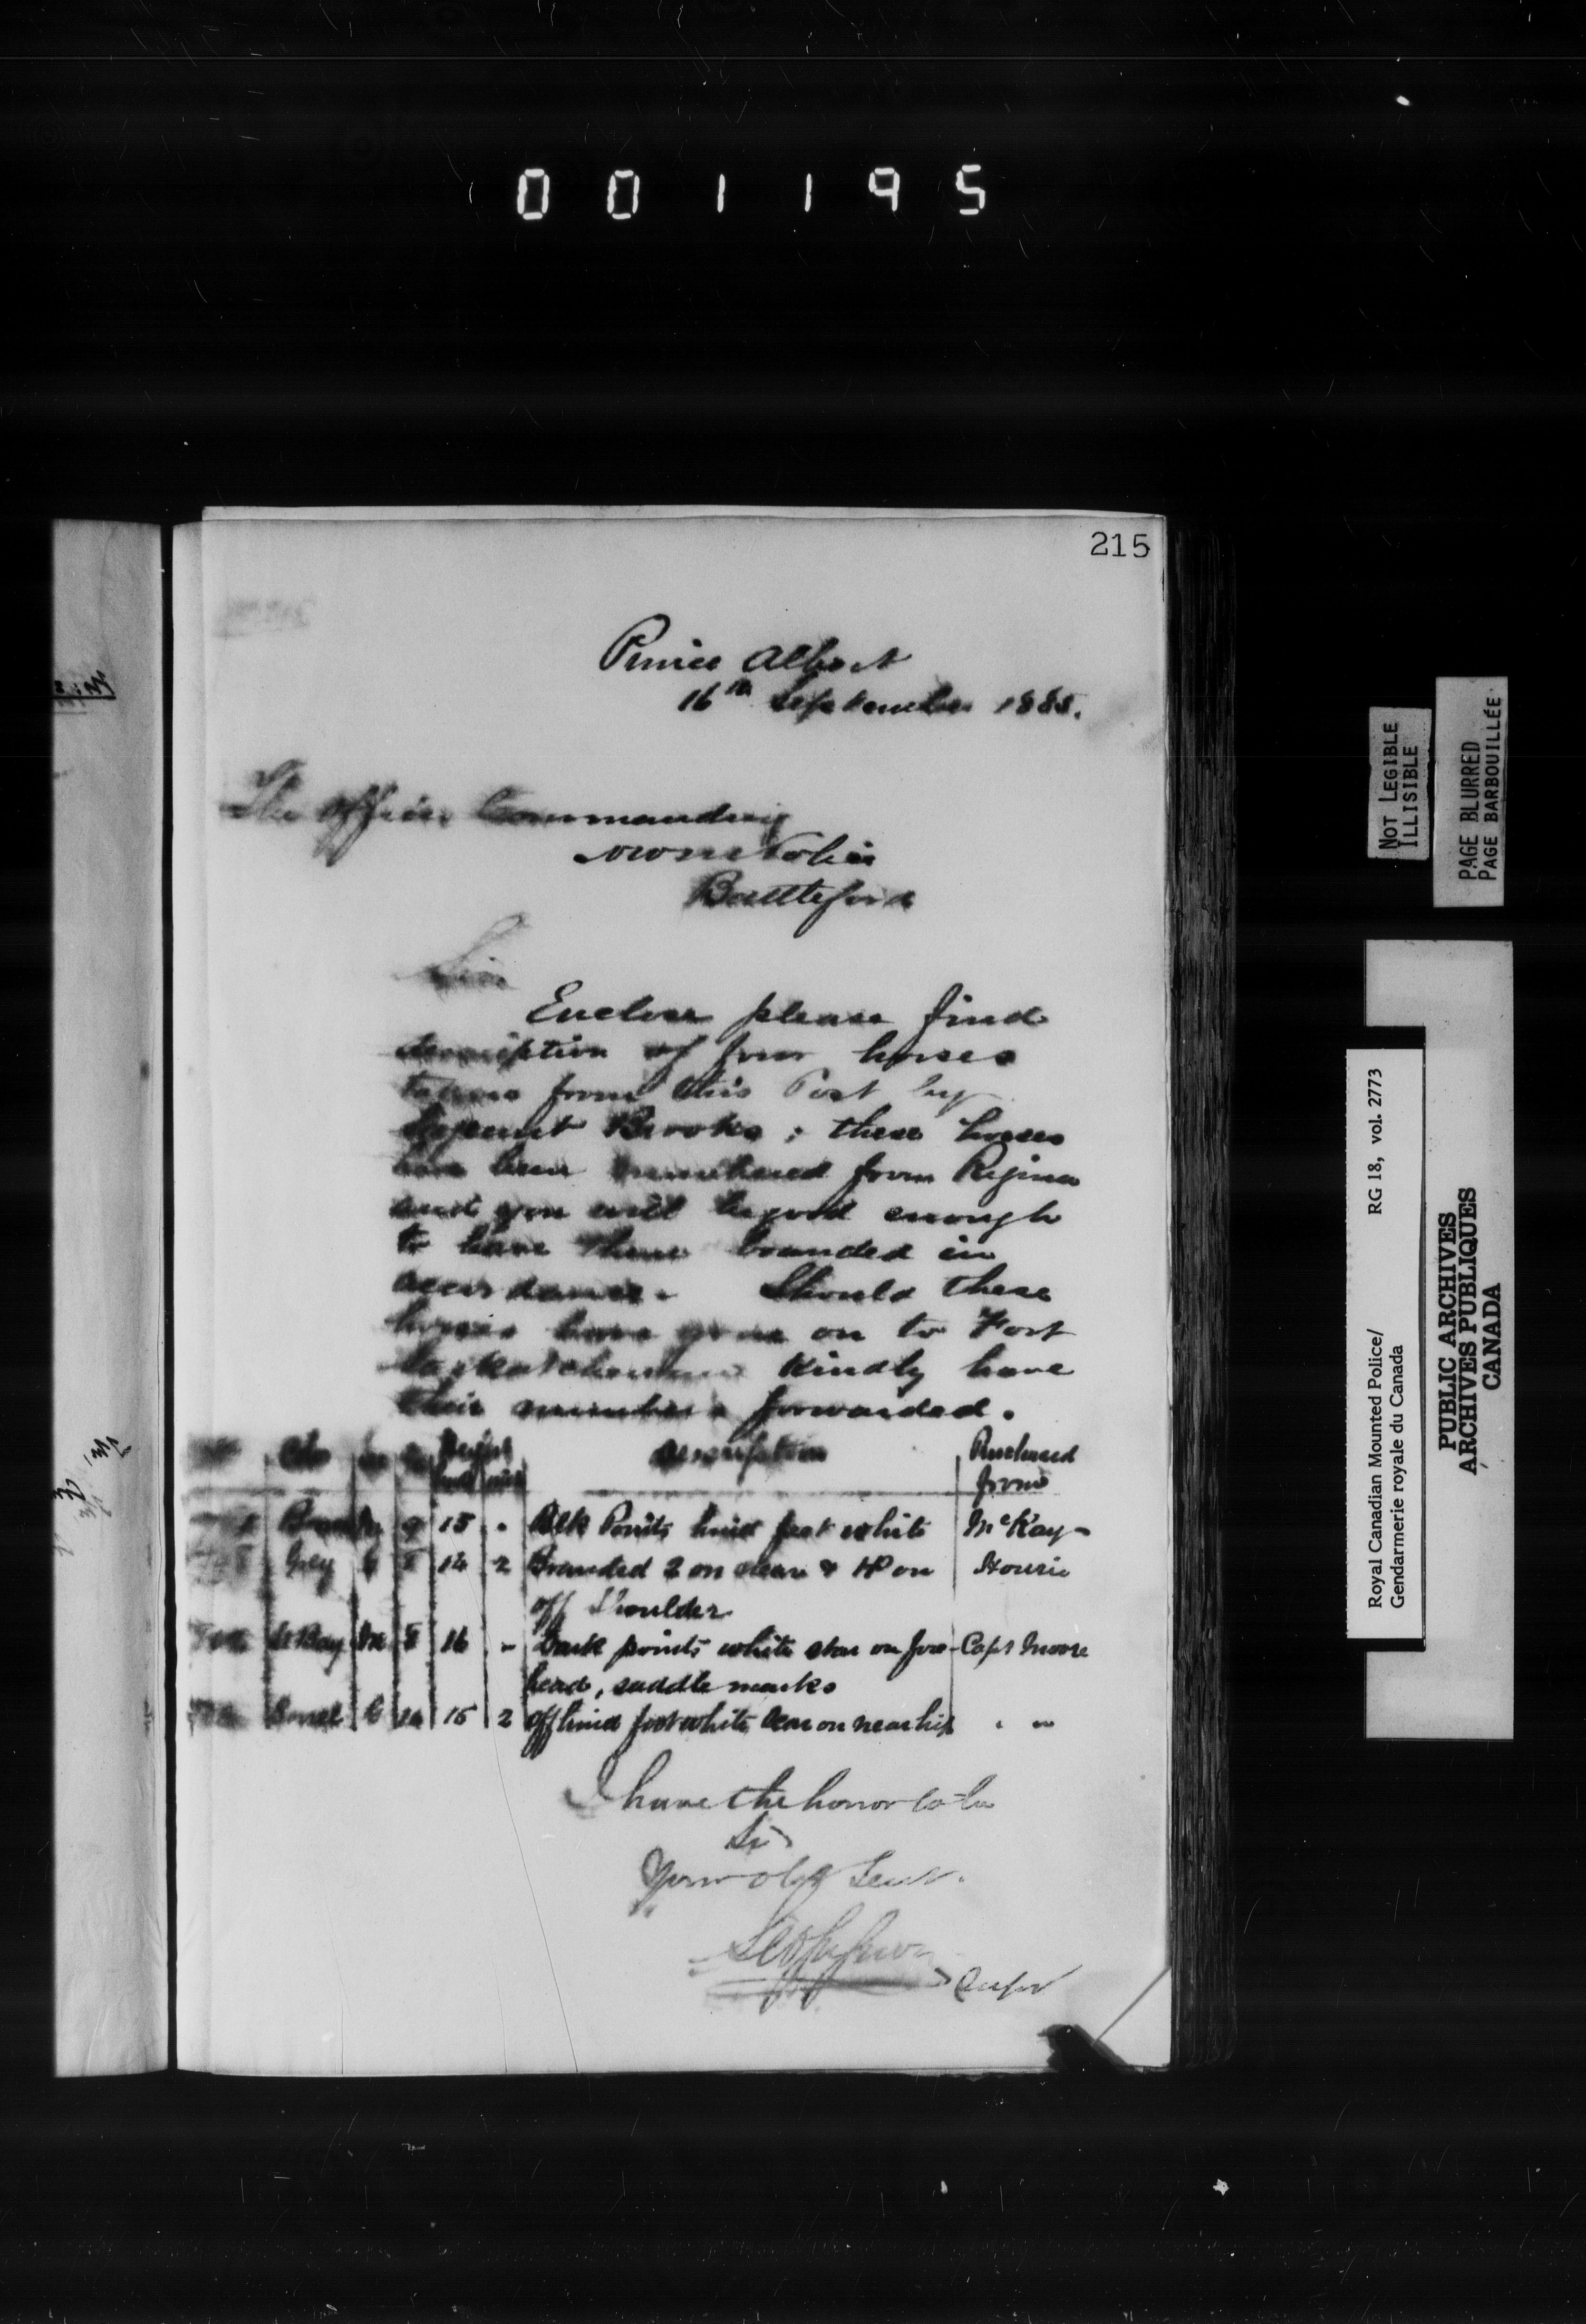 001195
215
Prince Albert
16th September 1885.
The Officer Commanding
NWM Police
Battleford
Sir
Enclosed please find
description of four horses
taken from this Post by
Sergeant Brooks; these horses
have been numbered from Regina
and you will be good enough
to have them branded in
accordance. Should these
horses have gone on to Fort
Saskatchewan kindly have
their numbers forwarded.
Height Description Purchased
from
15 " Blk Points hind feet white McKay
Grey 14 2 Branded 2 on near & HP on Hourie
off Shoulder
Bay 16 " Dark points white star on fore- Capt Moore
head, saddle marks
Sorrel 15 2 off hind foot white scar on near hip " "
I have the honor to be
Sir
Your obt Servt.
Supt
NOT LEGIBLE
ILLISIBLE
PAGE BLURRED
PAGE BARBOUILLÉE
Royal Canadian Mounted Police/ RG 18, vol. 2773
Gendarmerie royale du Canada
PUBLIC ARCHIVES
ARCHIVES PUBLIQUES
CANADA